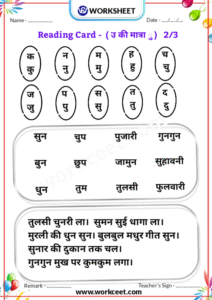 WORKSHEET
Name - Date -
Reading Card - ( उ की मात्रा ु ) 2/3
क न म ह च
कु नु मु हु चु
ज प स त द
जु पु सु तु दु
सुन चुप पुजारी गुनगुन
बुन छुप जामुन सुहावनी
धुन तुम तुलसी फुलवारी
तुलसी चुनरी ला। सुमन सुई धागा ला।
मुरली की धुन सुन। बुलबुल मधुर गीत सुन।
सुनार की दुकान तक चल।
गुनगुन मुख पर कुमकुम लगा।
Remark - Teacher's Sign -
www.workceet.com